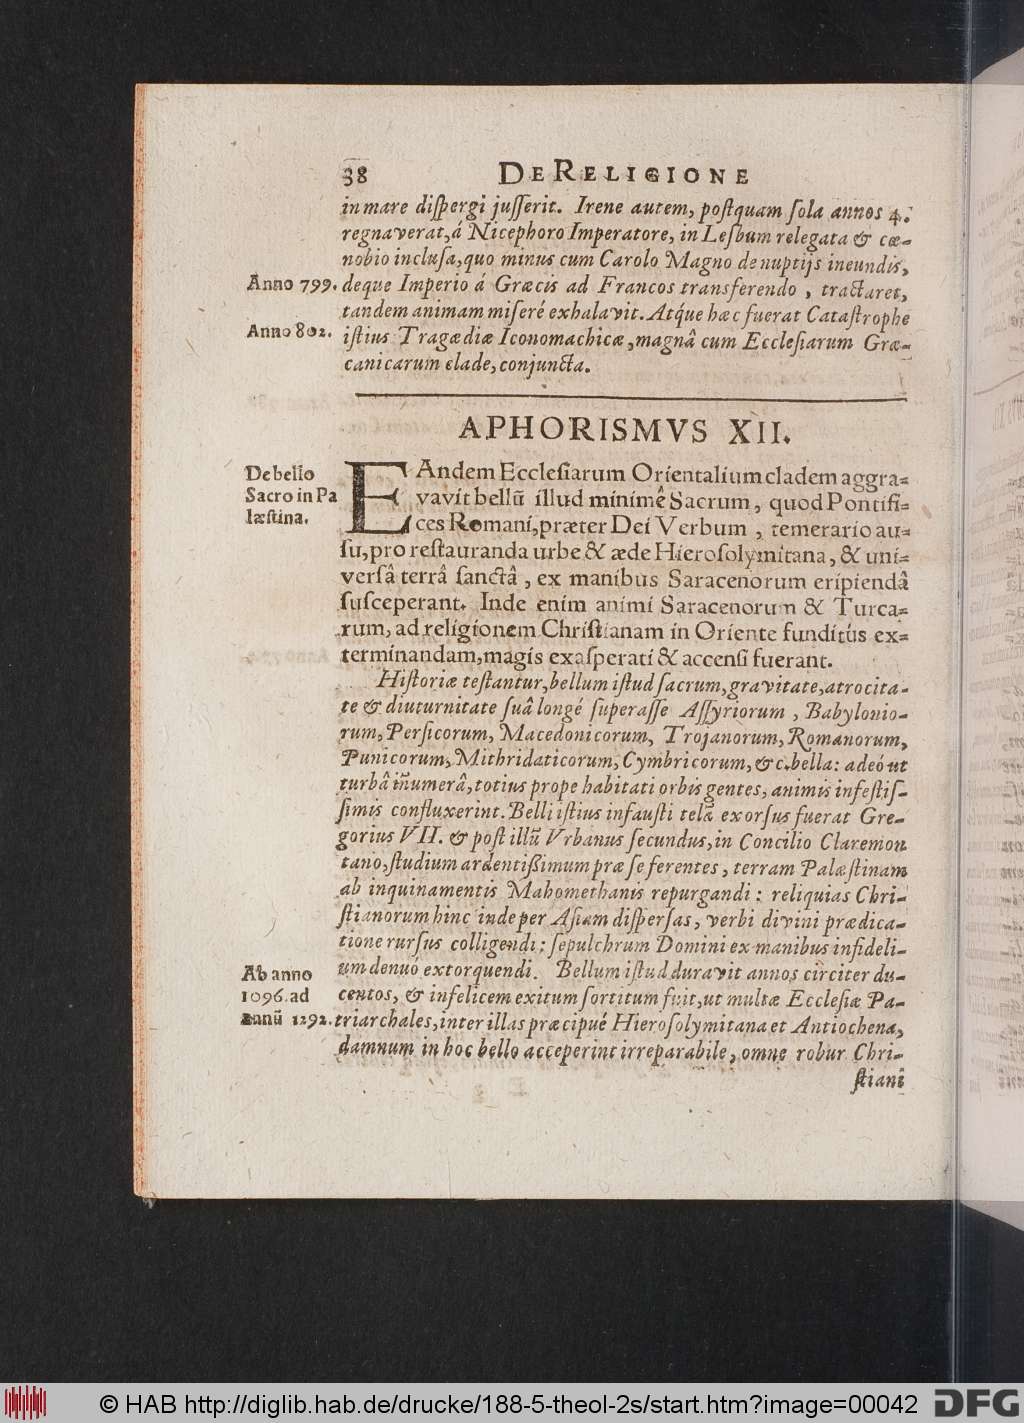 38 DE RELIGIONE
in mare diſpergi juſſerit. Irene autem, poſtquam ſola annos 4.
regnaverat, á Nicephoro Imperatore, in Lesbum relegata & cœ-
nobio incluſa, quo minus cum Carolo Magno de nuptijs ineundis,
Anno 799. deque Imperio á Græcis ad Francos transferendo, tractaret,
tandem animam miſeré exhalavit. Atq́ue hæc fuerat Cataſtrophe
Anno 802. iſtius Tragædiæ Iconomachicæ, magnâ cum Eccleſiarum Græ-
canicarum clade, conjuncta.
APHORISMVS XII.
De bello
Sacro in Pa
læſtina.
EAndem Eccleſiarum Orientalium cladem aggra-
vavit bellũ illud minimê Sacrum, quod Pontifi-
ces Romani, præter Dei Verbum, temerario au-
ſu, pro reſtauranda urbe & æde Hieroſolymitana, & uni-
verſâ terrâ ſanctâ, ex manibus Saracenorum eripiendâ
ſuſceperant. Inde enim animi Saracenorum & Turca-
rum, ad religionem Chriſtianam in Oriente funditùs ex-
terminandam, magis exaſperati & accenſi fuerant.
Hiſtoriæ teſtantur, bellum iſtud ſacrum, gravitate, atrocita-
te & diuturnitate ſuâ longé ſuperaſſe Aſſyriorum, Babylonio-
rum, Perſicorum, Macedonicorum, Trojanorum, Romanorum,
Punicorum, Mithridaticorum, Cymbricorum, & c. bella: adeó ut
turbâ iñumerâ, totius prope habitati orbis gentes, animis infeſtiſ-
ſimis confluxerint. Belli iſtius infauſti telã exorſus fuerat Gre-
gorius VII. & poſt illũ Vrbanus ſecundus, in Concilio Claremon
tano, ſtudium ardentißimum præ ſe ferentes, terram Palæſtinam
ab inquinamentis Mahomethanis repurgandi: reliquias Chri-
ſtianorum hinc inde per Aſiam diſperſas, verbi divini prædica-
tione rurſus colligendi: ſepulchrum Domini ex manibus infideli-
um denuó extorquendi. Bellum iſtud duravit annos circiter du-
centos, & infelicem exitum ſortitum fuit, ut multæ Eccleſiæ Pa-
triarchales, inter illas præcipué Hieroſolymitana et Antiochena,
damnum in hoc bello acceperint irreparabile, omne robur Chri-
Ab anno
1096. ad
annũ 1292.
ſtiani
© HAB http://diglib.hab.de/drucke/188-5-theol-2s/start.htm?image=00042
DFG